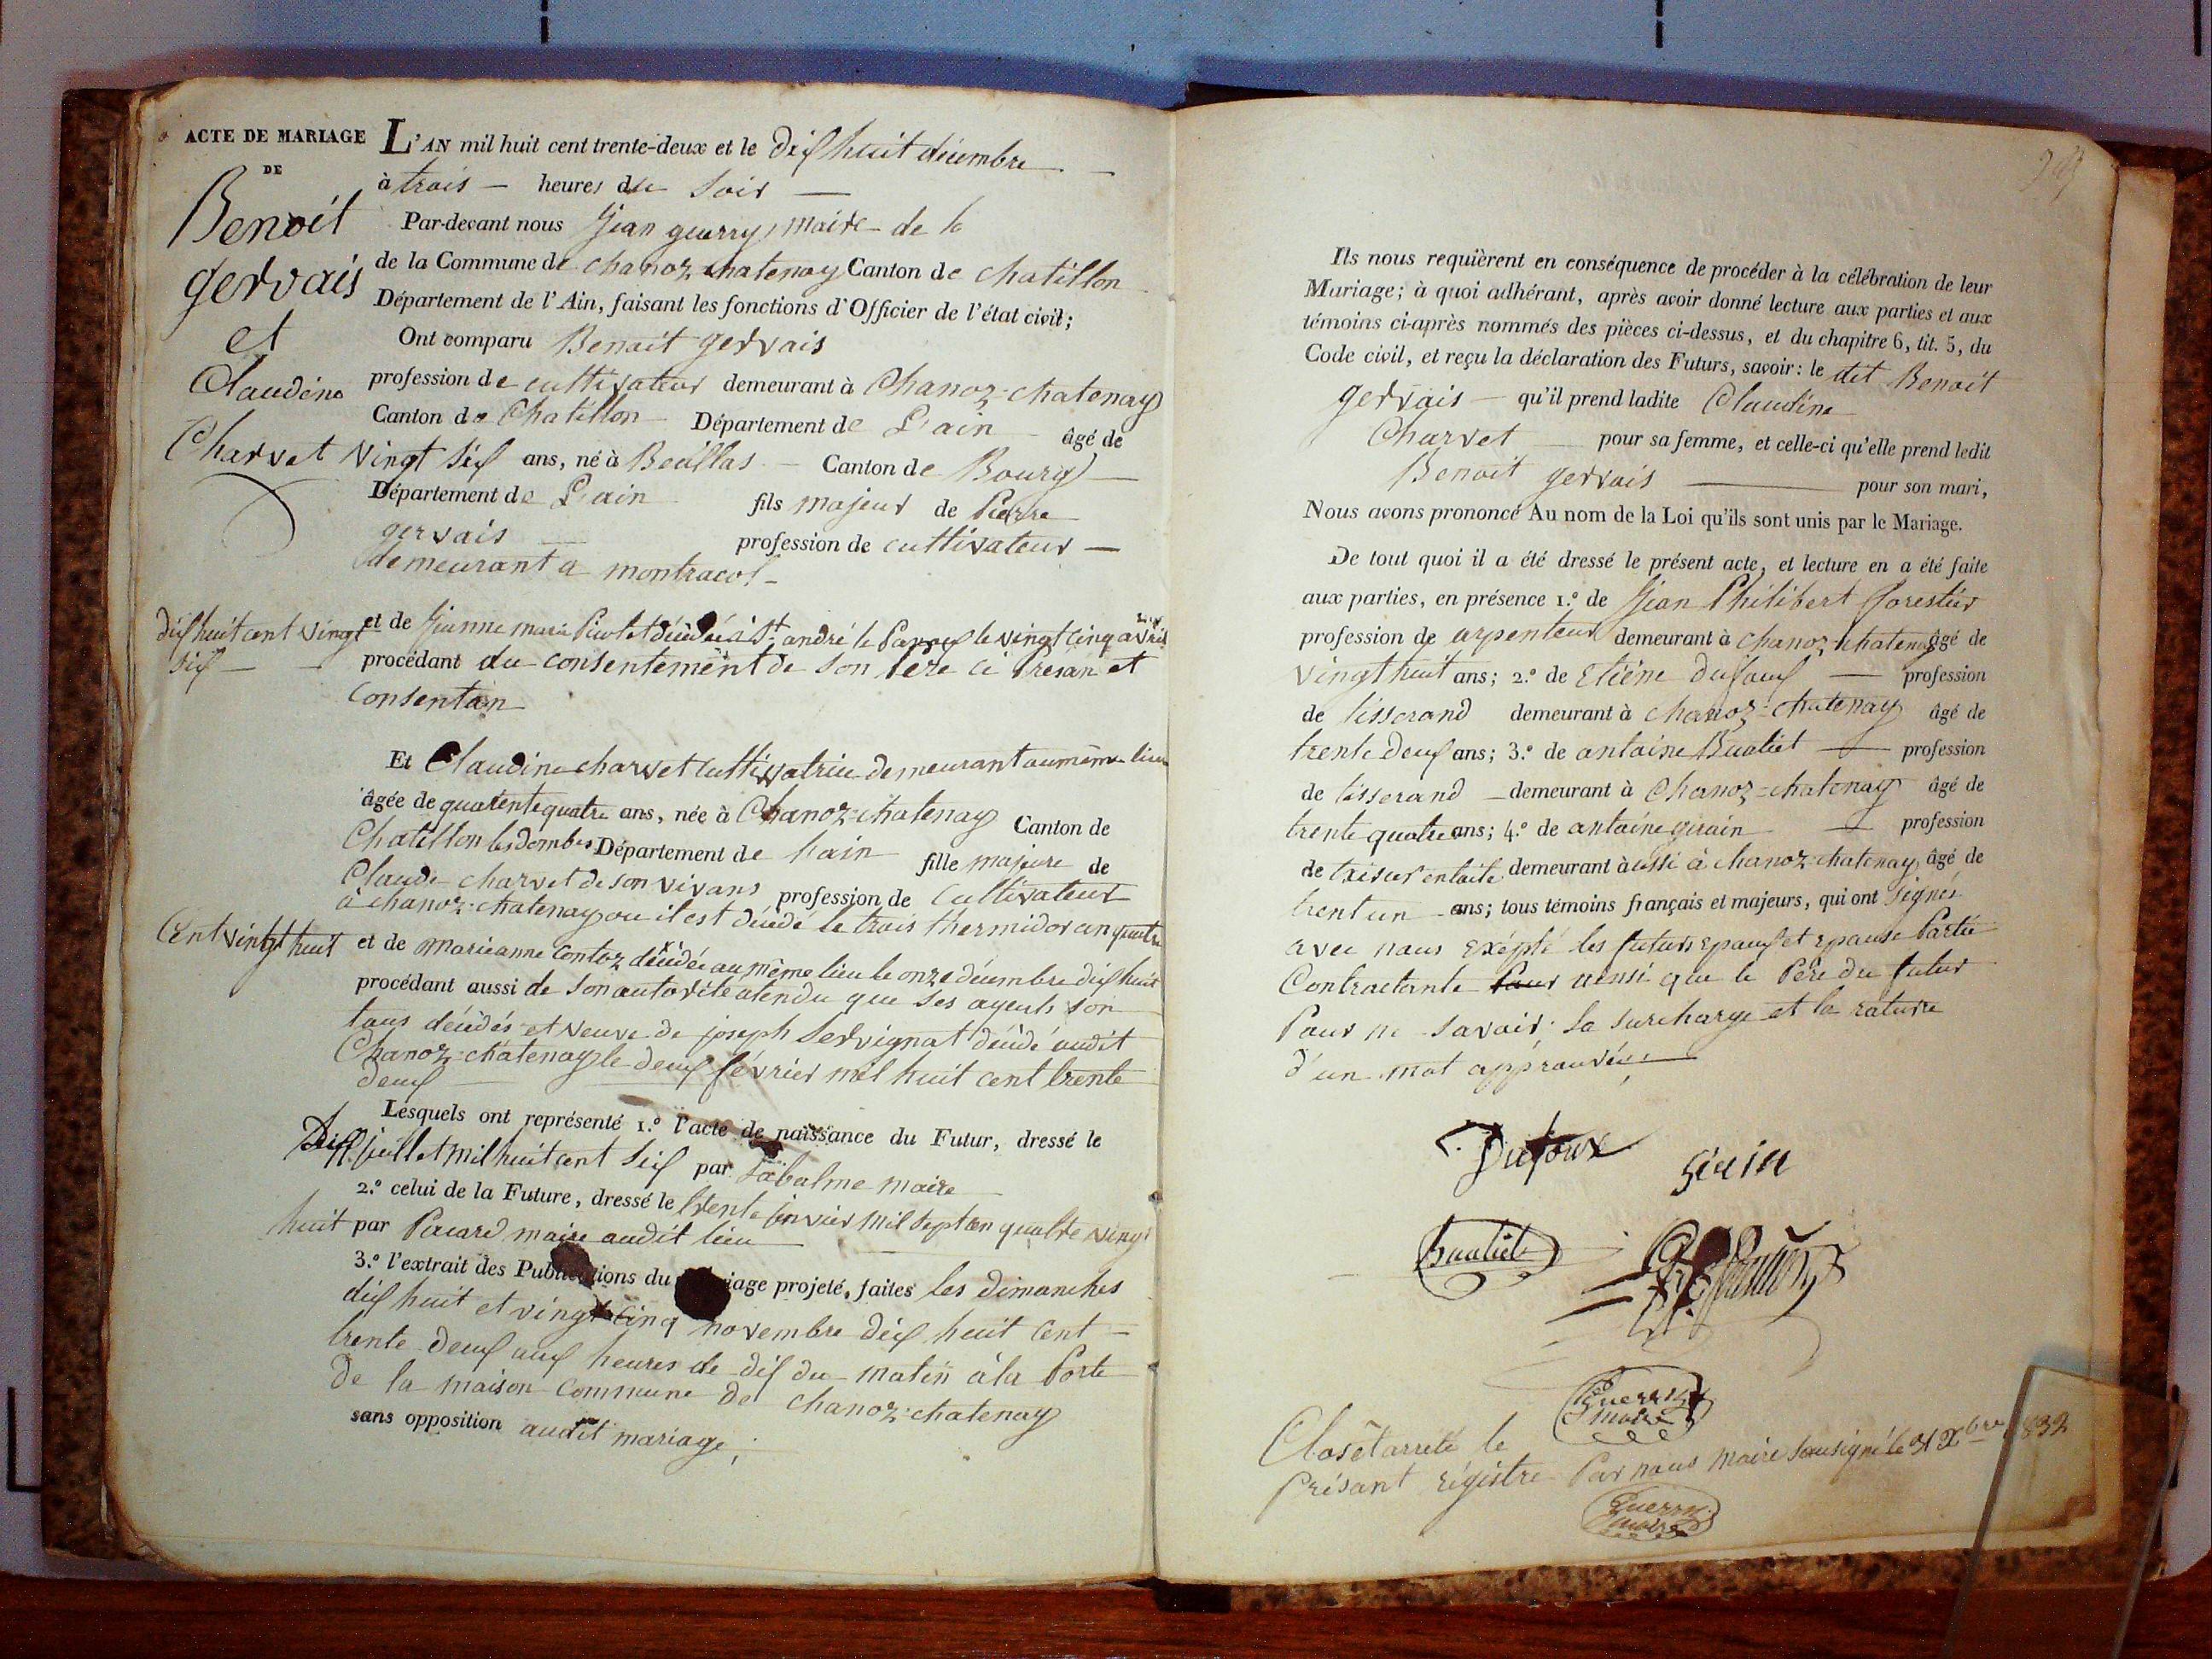 ACTE DE MARIAGE
DE
Benoit
gervais
et
Claudine
Charvet
L'AN mil huit cent trente-deux et le dix huit décembre
à trois heures du soir
Par-devant nous Jean guerry maire de la
de la Commune de chanoz chatenay Canton de chatillon
Département de l'Ain, faisant les fonctions d'Officier de l'état civil;
Ont comparu Benoit gervais
profession de cultivateur demeurant à Chanoz-chatenay
Canton de Chatillon Département de L'ain âgé de
vingt six ans, né à Buellas Canton de Bourg
Département de L'ain fils majeur de Pierre
gervais profession de cultivateur
demeurant a montracol
et de Jeanne marie décédée à St andré le Panoux le vingt cinq avril
dix huit cent vingt
six
procédant du consentement de son Père ci Presan et
Consentan
Et Claudine charvet cultivatrice demeurant au même lieu
âgée de quarente quatre ans, née à Chanoz-chatenay Canton de
Chatillon les dombes Département de l'ain fille majeure de
Claude charvet de son vivans profession de Cultivateur
à chanoz-chatenay ou il est décédé le trois thermidor an quatre
et de marieanne Contoz décédée au même lieu le onze décembre dix huit
Cent vingt huit
procédant aussi de son autorité atendu que ses ayeuls son
tous décédés et veuve de joseph Servignat décédé audit
Chanoz-chatenay le deux février mil huit cent trente
deux
Lesquels ont représenté 1.º l'acte de naissance du Futur, dressé le
juillet mil huit cent six par Labalme maire
2.º celui de la Future, dressé le trente janvier mil sept cen quatre vingt
huit par Pacard maire audit lieu
3.º l'extrait des Publications du mariage projeté, faites les dimanches
dix huit et vingt cinq novembre dix huit cent
trente deux aux heures de dix du matin à la Porte
De la maison Commune de chanoz-chatenay
sans opposition audit mariage;
Ils nous requièrent en conséquence de procéder à la célébration de leur
Mariage; à quoi adhérant, après avoir donné lecture aux parties et aux
témoins ci-après nommés des pièces ci-dessus, et du chapitre 6, tit. 5, du
Code civil, et reçu la déclaration des Futurs, savoir: le dit Benoit
gervais qu'il prend ladite Claudine
Charvet pour sa femme, et celle-ci qu'elle prend ledit
Benoit gervais pour son mari,
Nous avons prononcé Au nom de la Loi qu'ils sont unis par le Mariage.
De tout quoi il a été dressé le présent acte, et lecture en a été faite
aux parties, en présence 1.º de Jean Philibert forestier
profession de arpenteur demeurant à chanoz-chatenay âgé de
vingt huit ans; 2.º de Etiéne Dufoux profession
de tisserand demeurant à chanoz-chatenay âgé de
trente deux ans; 3.º de antoine Buatiet profession
de tisserand demeurant à Chanoz-chatenay âgé de
trente quatre ans; 4.º de antoine girain profession
de tixieur en toile demeurant aussi à chanoz-chatenay âgé de
trent un ans; tous témoins français et majeurs, qui ont signés
avec nous exépté les futurs epoux et epouse Partie
Contractante Pour ainsi que le Père du futur
Pour ne savoir. La surcharge et la rature
d'un mot approuvée
Dufoux
girin
buatiet
Guerry
maire
Clos et arreté le
Présant régistre Par nous maire sousigné le 31 Xbre 1832
Guerry
maire